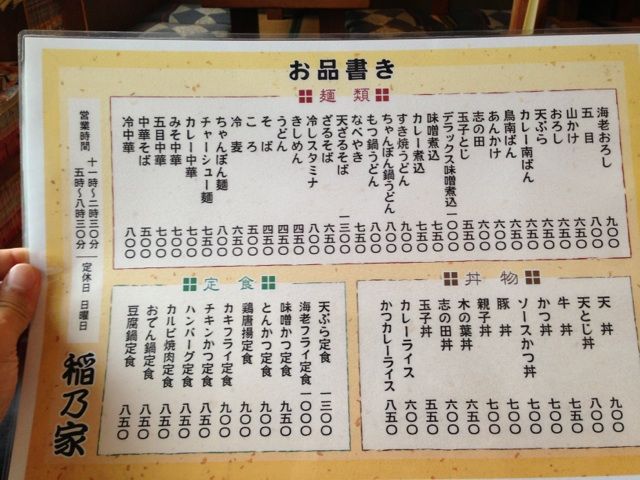 お品書き
麺類
海老おろし 九〇〇
五目 八〇〇
山かけ 六五〇
おろし 六五〇
天ぷら 六五〇
カレー南ばん 六五〇
鳥南ばん 六〇〇
あんかけ 六〇〇
志の田 五五〇
玉子とじ 五五〇
デラックス味噌煮込 一〇〇〇
味噌煮込 七五〇
カレー煮込 七五〇
すき焼うどん 九〇〇
ちゃんぽん鍋うどん 八〇〇
もつ鍋うどん 八〇〇
なべやき 九〇〇
天ざるそば 一三〇〇
ざるそば 六五〇
冷しスタミナ 八〇〇
きしめん 四五〇
うどん 四五〇
そば 四五〇
ころ 五〇〇
冷麦 六五〇
ちゃんぽん麺 八〇〇
チャーシュー麺 七五〇
カレー中華 七〇〇
みそ中華
五目中華 八〇〇
中華そば 五〇〇
冷中華 八〇〇
丼物
天丼 九〇〇
天とじ丼 九〇〇
牛丼 七〇〇
かつ丼 八〇〇
ソースかつ丼 八〇〇
豚丼 七〇〇
親子丼 七〇〇
木の葉丼 六〇〇
志の田丼 六〇〇
玉子丼 五五〇
カレーライス 六〇〇
かつカレーライス 八五〇
定食
天ぷら定食 一三〇〇
海老フライ定食 一〇〇〇
味噌かつ定食 九五〇
とんかつ定食 九〇〇
鶏唐揚定食 九〇〇
カキフライ定食 九〇〇
チキンかつ定食 八五〇
ハンバーグ定食 八五〇
カルビ焼肉定食 八五〇
おでん鍋定食 八五〇
豆腐鍋定食 八五〇
営業時間 十一時〜二時三〇分
五時〜八時三〇分
定休日 日曜日
稲乃家